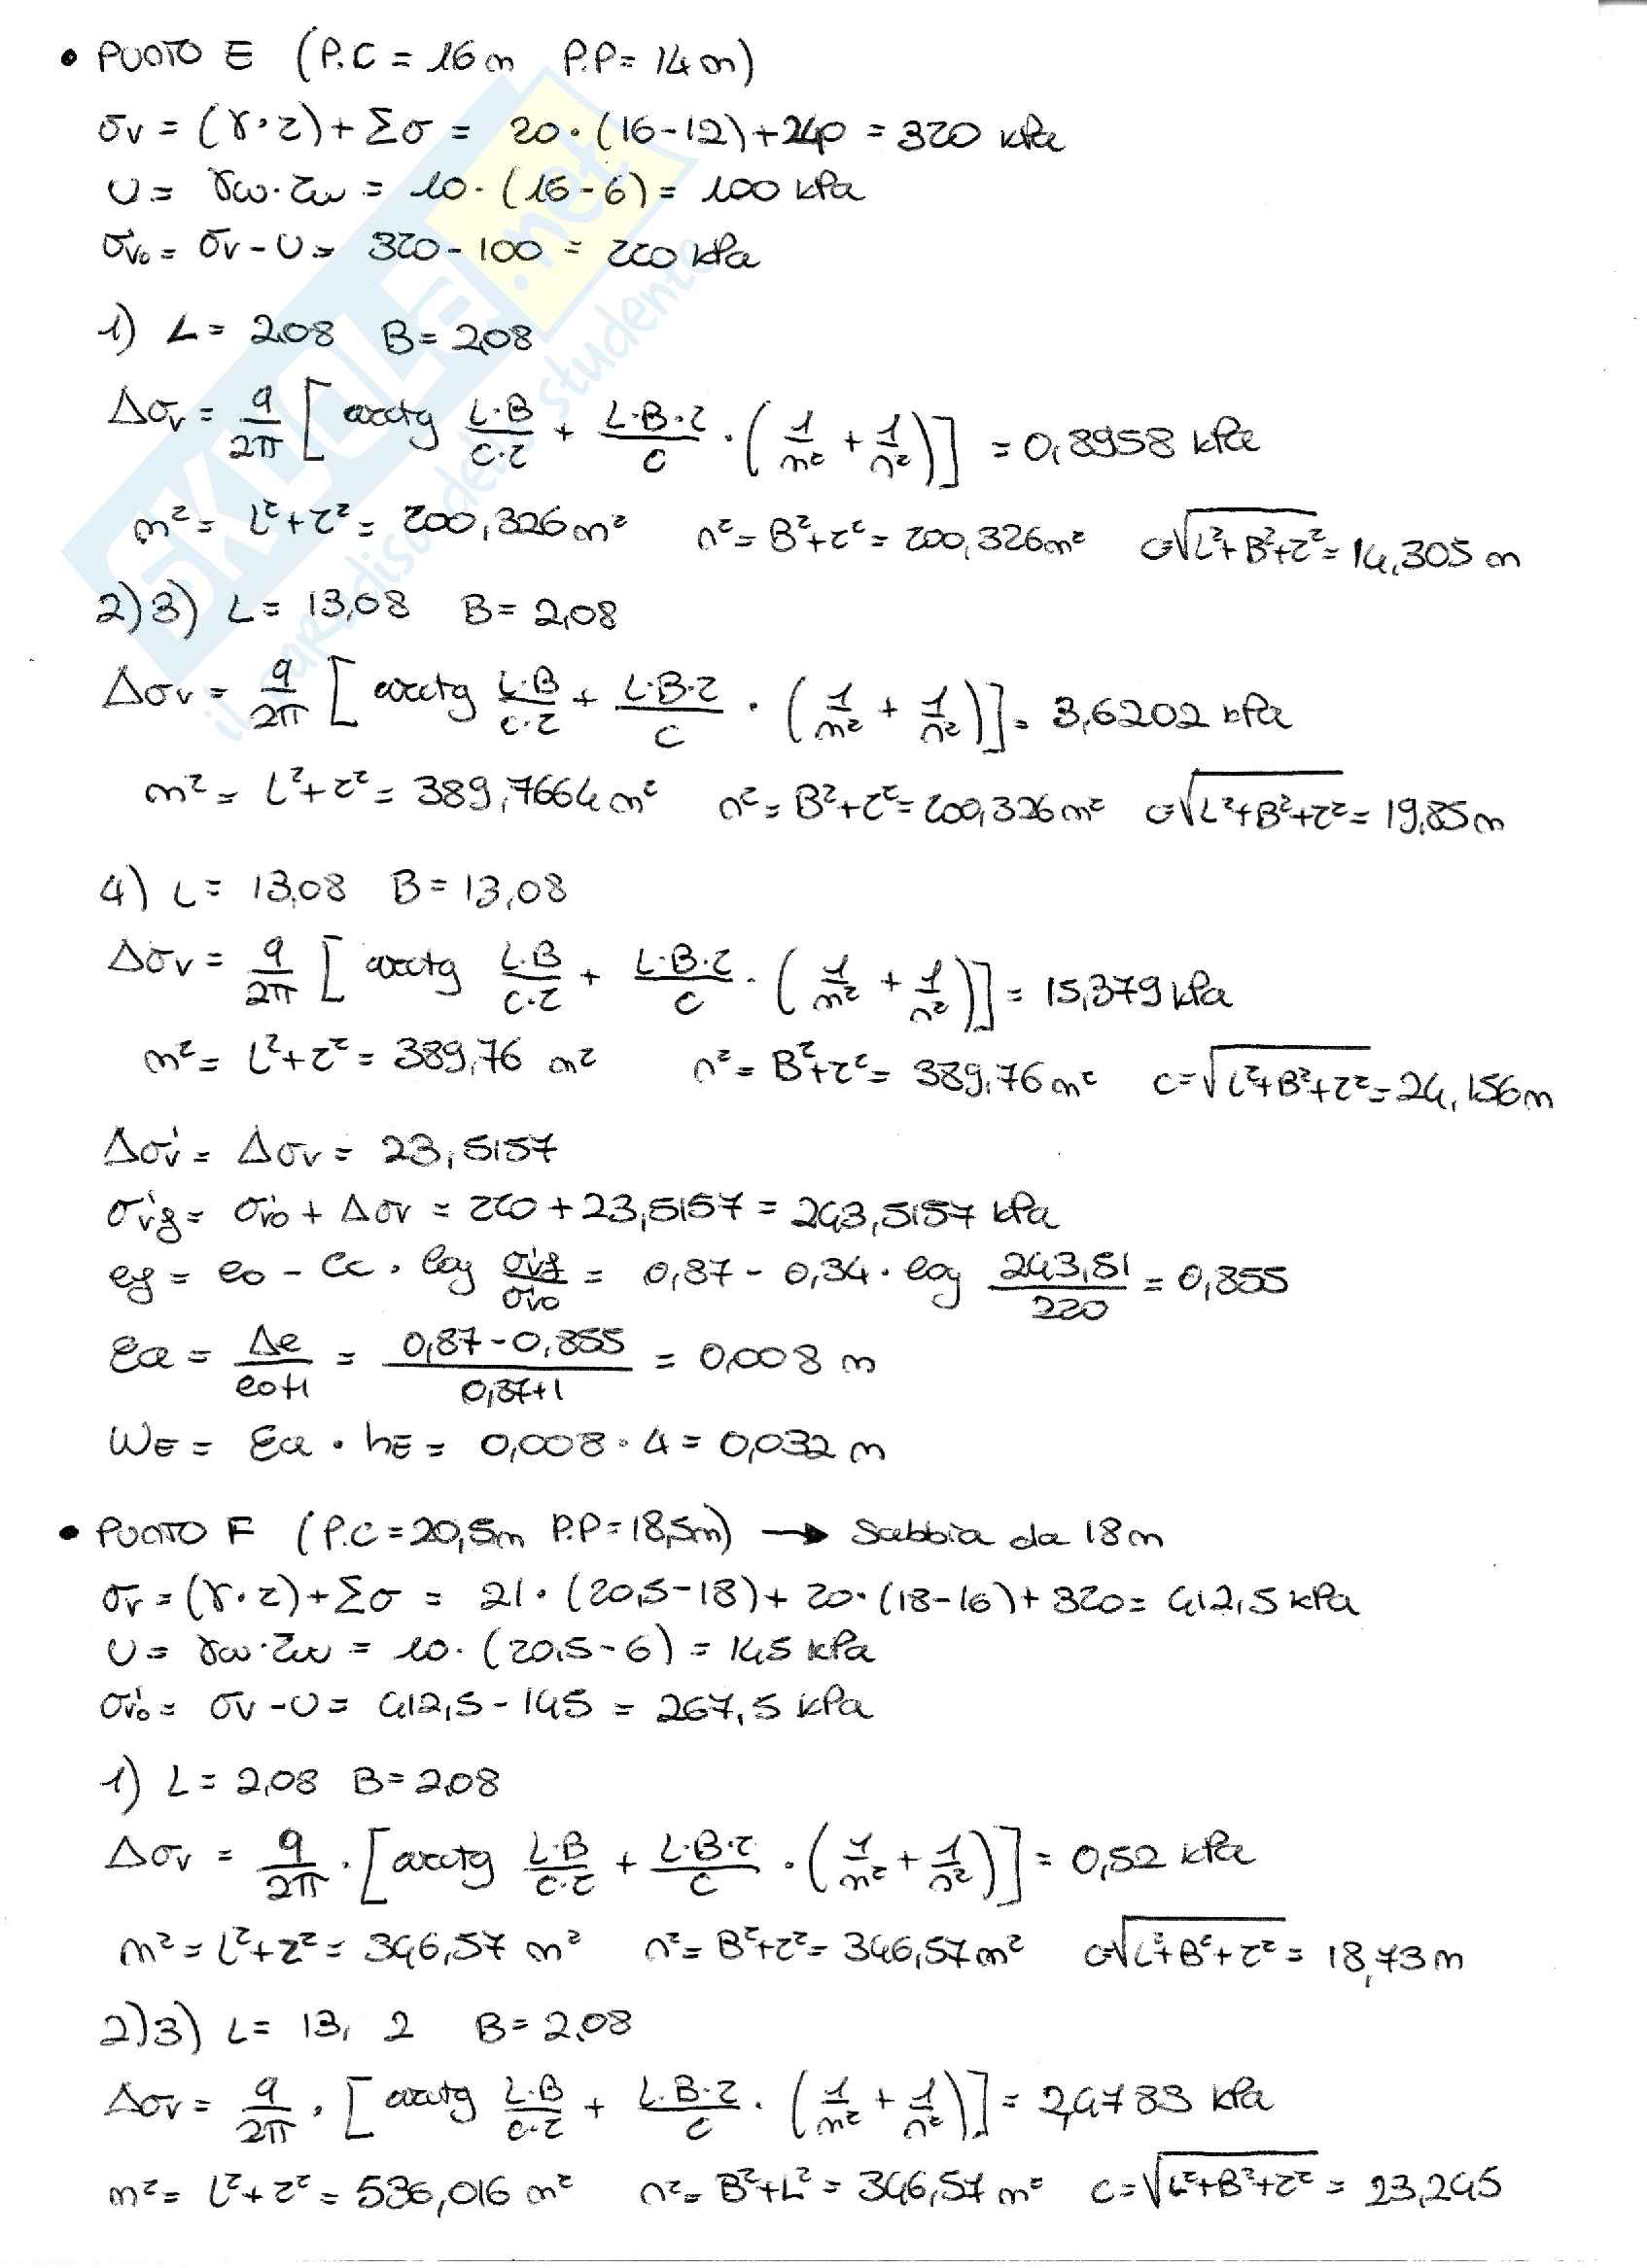 • PUNTO E (P.C = 16 m P.P = 14 m)
σv = (γ·z) + Σσ = 20·(16-12)+240 = 320 kPa
U = γw·zw = 10·(16-6) = 100 kPa
σ'vo = σv - U = 320 - 100 = 220 kPa
1) L = 2,08 B = 2,08
Δσv = q/2π [ arctg L·B/c·z + L·B·z/c · (1/m² + 1/n²)] = 0,8958 kPa
m² = L²+z² = 200,326 m² n² = B²+z² = 200,326 m² c=√L²+B²+z² = 14,305 m
2)3) L = 13,08 B = 2,08
Δσv = q/2π [ arctg L·B/c·z + L·B·z/c · (1/m² + 1/n²)] = 3,6202 kPa
m² = L²+z² = 389,7664 m² n² = B²+z² = 200,326 m² c=√L²+B²+z² = 19,85 m
4) L = 13,08 B = 13,08
Δσv = q/2π [ arctg L·B/c·z + L·B·z/c · (1/m² + 1/n²)] = 15,379 kPa
m² = L²+z² = 389,76 m² n² = B²+z² = 389,76 m² c=√L²+B²+z² = 24,156 m
Δσ'v = Δσv = 23,5157
σ'vf = σ'vo + Δσv = 220 + 23,5157 = 243,5157 kPa
ef = eo - Cc · log σ'vf/σ'vo = 0,87 - 0,34 · log 243,51/220 = 0,855
Ea = Δe/eo+1 = 0,87-0,855/0,87+1 = 0,008 m
WE = Ea · hE = 0,008 · 4 = 0,032 m
• PUNTO F (P.C = 20,5m P.P = 18,5m) → Sabbia da 18 m
σv = (γ·z)+Σσ = 21·(20,5-18)+20·(18-16)+320 = 412,5 kPa
U = γw·zw = 10·(20,5-6) = 145 kPa
σ'vo = σv - U = 412,5 - 145 = 267,5 kPa
1) L = 2,08 B = 2,08
Δσv = q/2π · [ arctg L·B/c·z + L·B·z/c · (1/m² + 1/n²)] = 0,52 kPa
m² = L²+z² = 346,57 m² n² = B²+z² = 346,57 m² c=√L²+B²+z² = 18,73 m
2)3) L = 13, 2 B = 2,08
Δσv = q/2π · [ arctg L·B/c·z + L·B·z/c · (1/m² + 1/n²)] = 2,4783 kPa
m² = L²+z² = 536,016 m² n² = B²+L² = 346,57 m² c = √L²+B²+z² = 23,245
SKUOLA.net
il paradiso dello studente